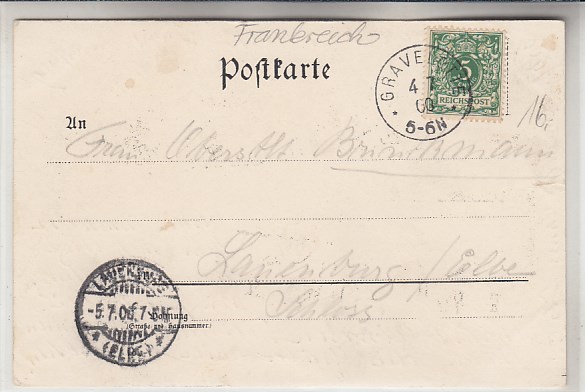 Frankreich
Postkarte
5
REICHSPOST
GRAVELOTTE
4 7
00
* 5-6N *
16,-
An
Frau Oberstlt Brinckmann
Lauenburg /Elbe
Schloss
LAUENBURG
-5.7.00.6-7
* (ELBE) *
Wohnung
(Straße und Hausnummer)